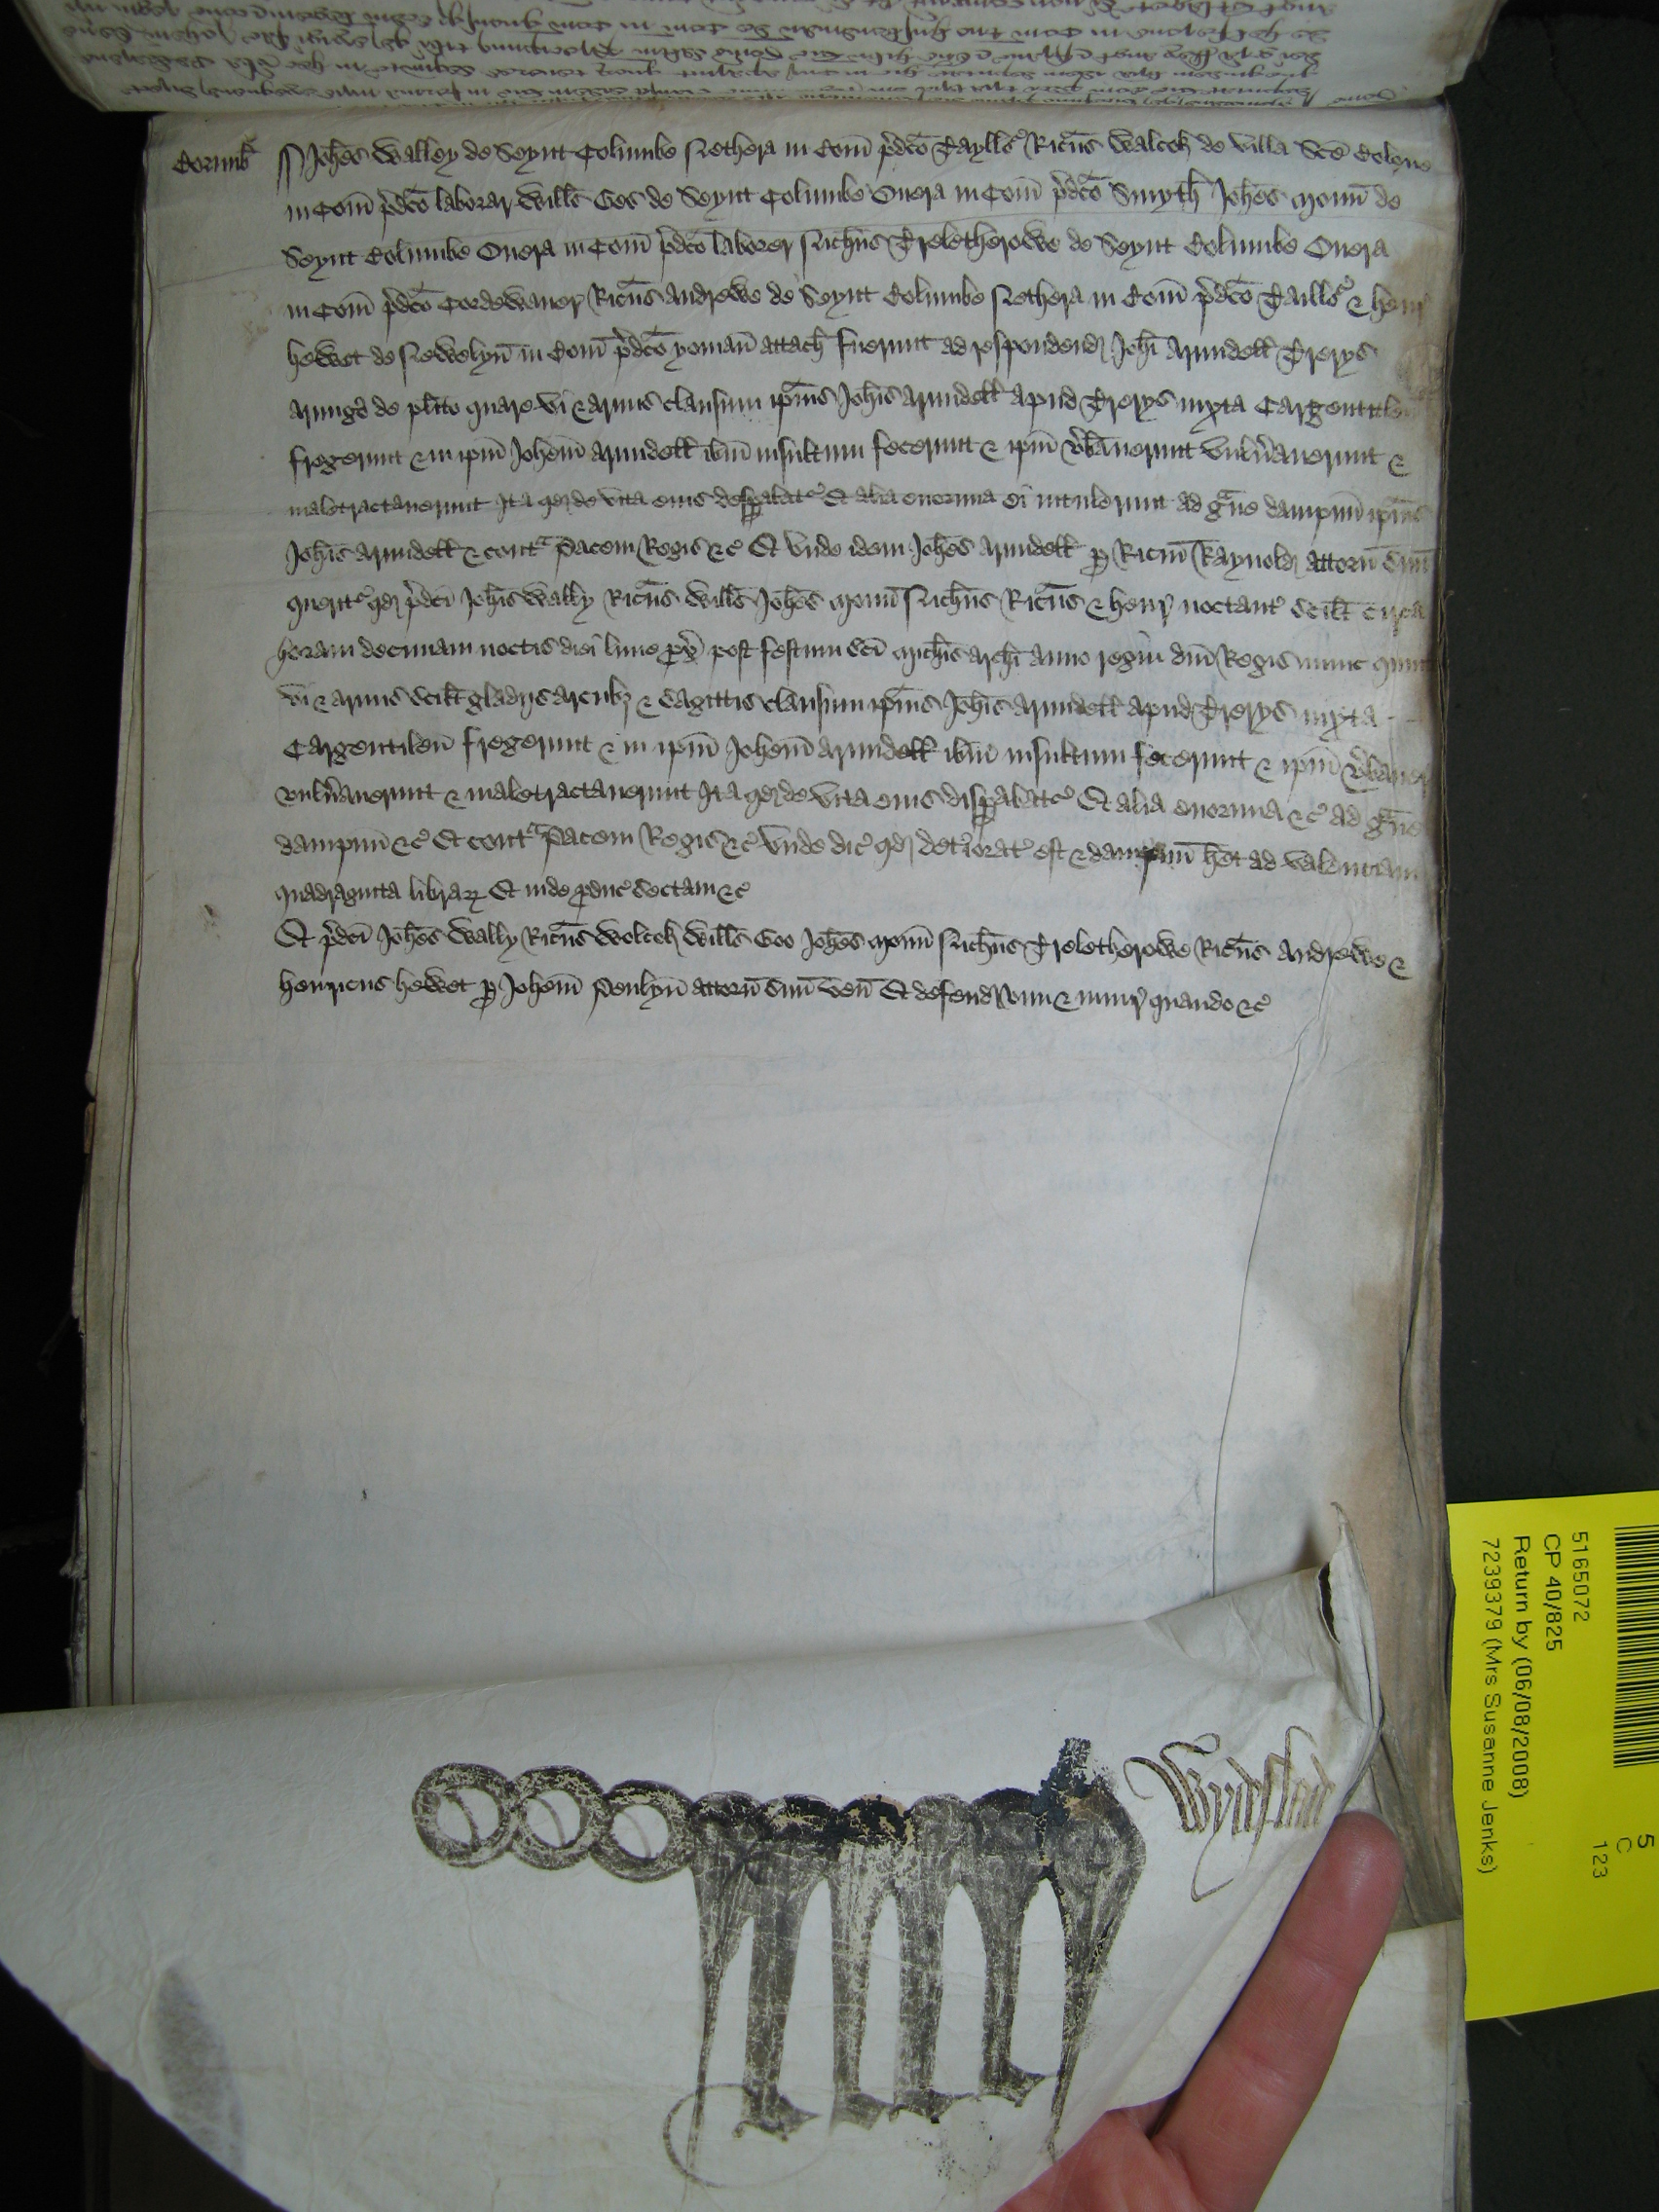 Cornub
Johes Walley de Seynt Columbe Nethera in Com p̄dco Tayllor Ricus Walcok de villa Sce Colupe
in Com p̄dco laborar Wills Gos de Seynt Columbe Ouera in Com p̄dco Smyth Johes Monn de
Seynt Columbe Ouera in Com p̄dco laborer Michus Treletherowe de Seynt Columbe Ouera
in Com p̄dco Cordewaner Ricus Andrewe de Seynt Columbe Nethera in Com p̄dco Taillor & Henr
Hewet de Newelyn in Com p̄dco yoman attach fuerunt ad respondend Johi Arundell Trerys
armigo de plito quare vi & armis clausum ipius Johis Arundell apud Trerys iuxta
fregerunt & in ipm Johem Arundell ibm insultum fecerunt & ipm v̄bauerunt vuln̄auerunt &
maletractauerunt Ita qd de vita eius despabat Et alia enormia ei intulerunt ad gue dampnum ipius
Johis Arundell & cont pacem Regis &c Et vnde idem Johes Arundell p Ricm Raynold attorn suu
querit qd p̄dci Johis Wally Ricus Wills Johes Monn Michus Ricus & Henr noctant scilt circa
horam decimam noctis diei lune px post festum sci Michis Archi anno regni dni Regis nunc
vi & armis scilt gladijs arcubz & sagittis clausum ipius Johis Arundell apud Trerys iuxta
Cargentilen fregerunt & in ipm Johem Arundell ibm insultum fecerunt & ipm
vuln̄auerunt & maletractauerunt Ita qd de vita eius dispabatr Et alia enormia &c ad gue
dampnum &c Et cont pacem Regis &c vnde dic qd det̄iorat est & dampnum het ad valenciam
quadraginta librar Et inde pduc sectam &c
Et p̄dci Johes Wally Ricus Wolcok Wills Goo Johes Monn Michus Treletherowe Ricus Andrewe &
Henricus Hewet p Johem Penlyn attorn suu ven Et defend vim & iniur quando &c
5165072
CP 40/825
Return by (06/08/2008)
7239379 (Mrs Susanne Jenks)
5
C
123